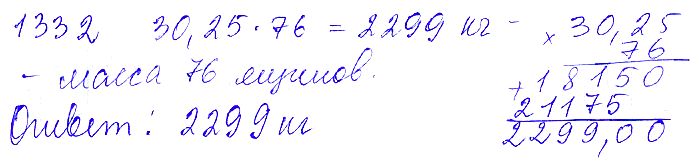 1332 30,25·76 = 2299 кг -
- масса 76 ящиков.
Ответ: 2299 кг
× 30,25
76
+ 18150
21175
2299,00